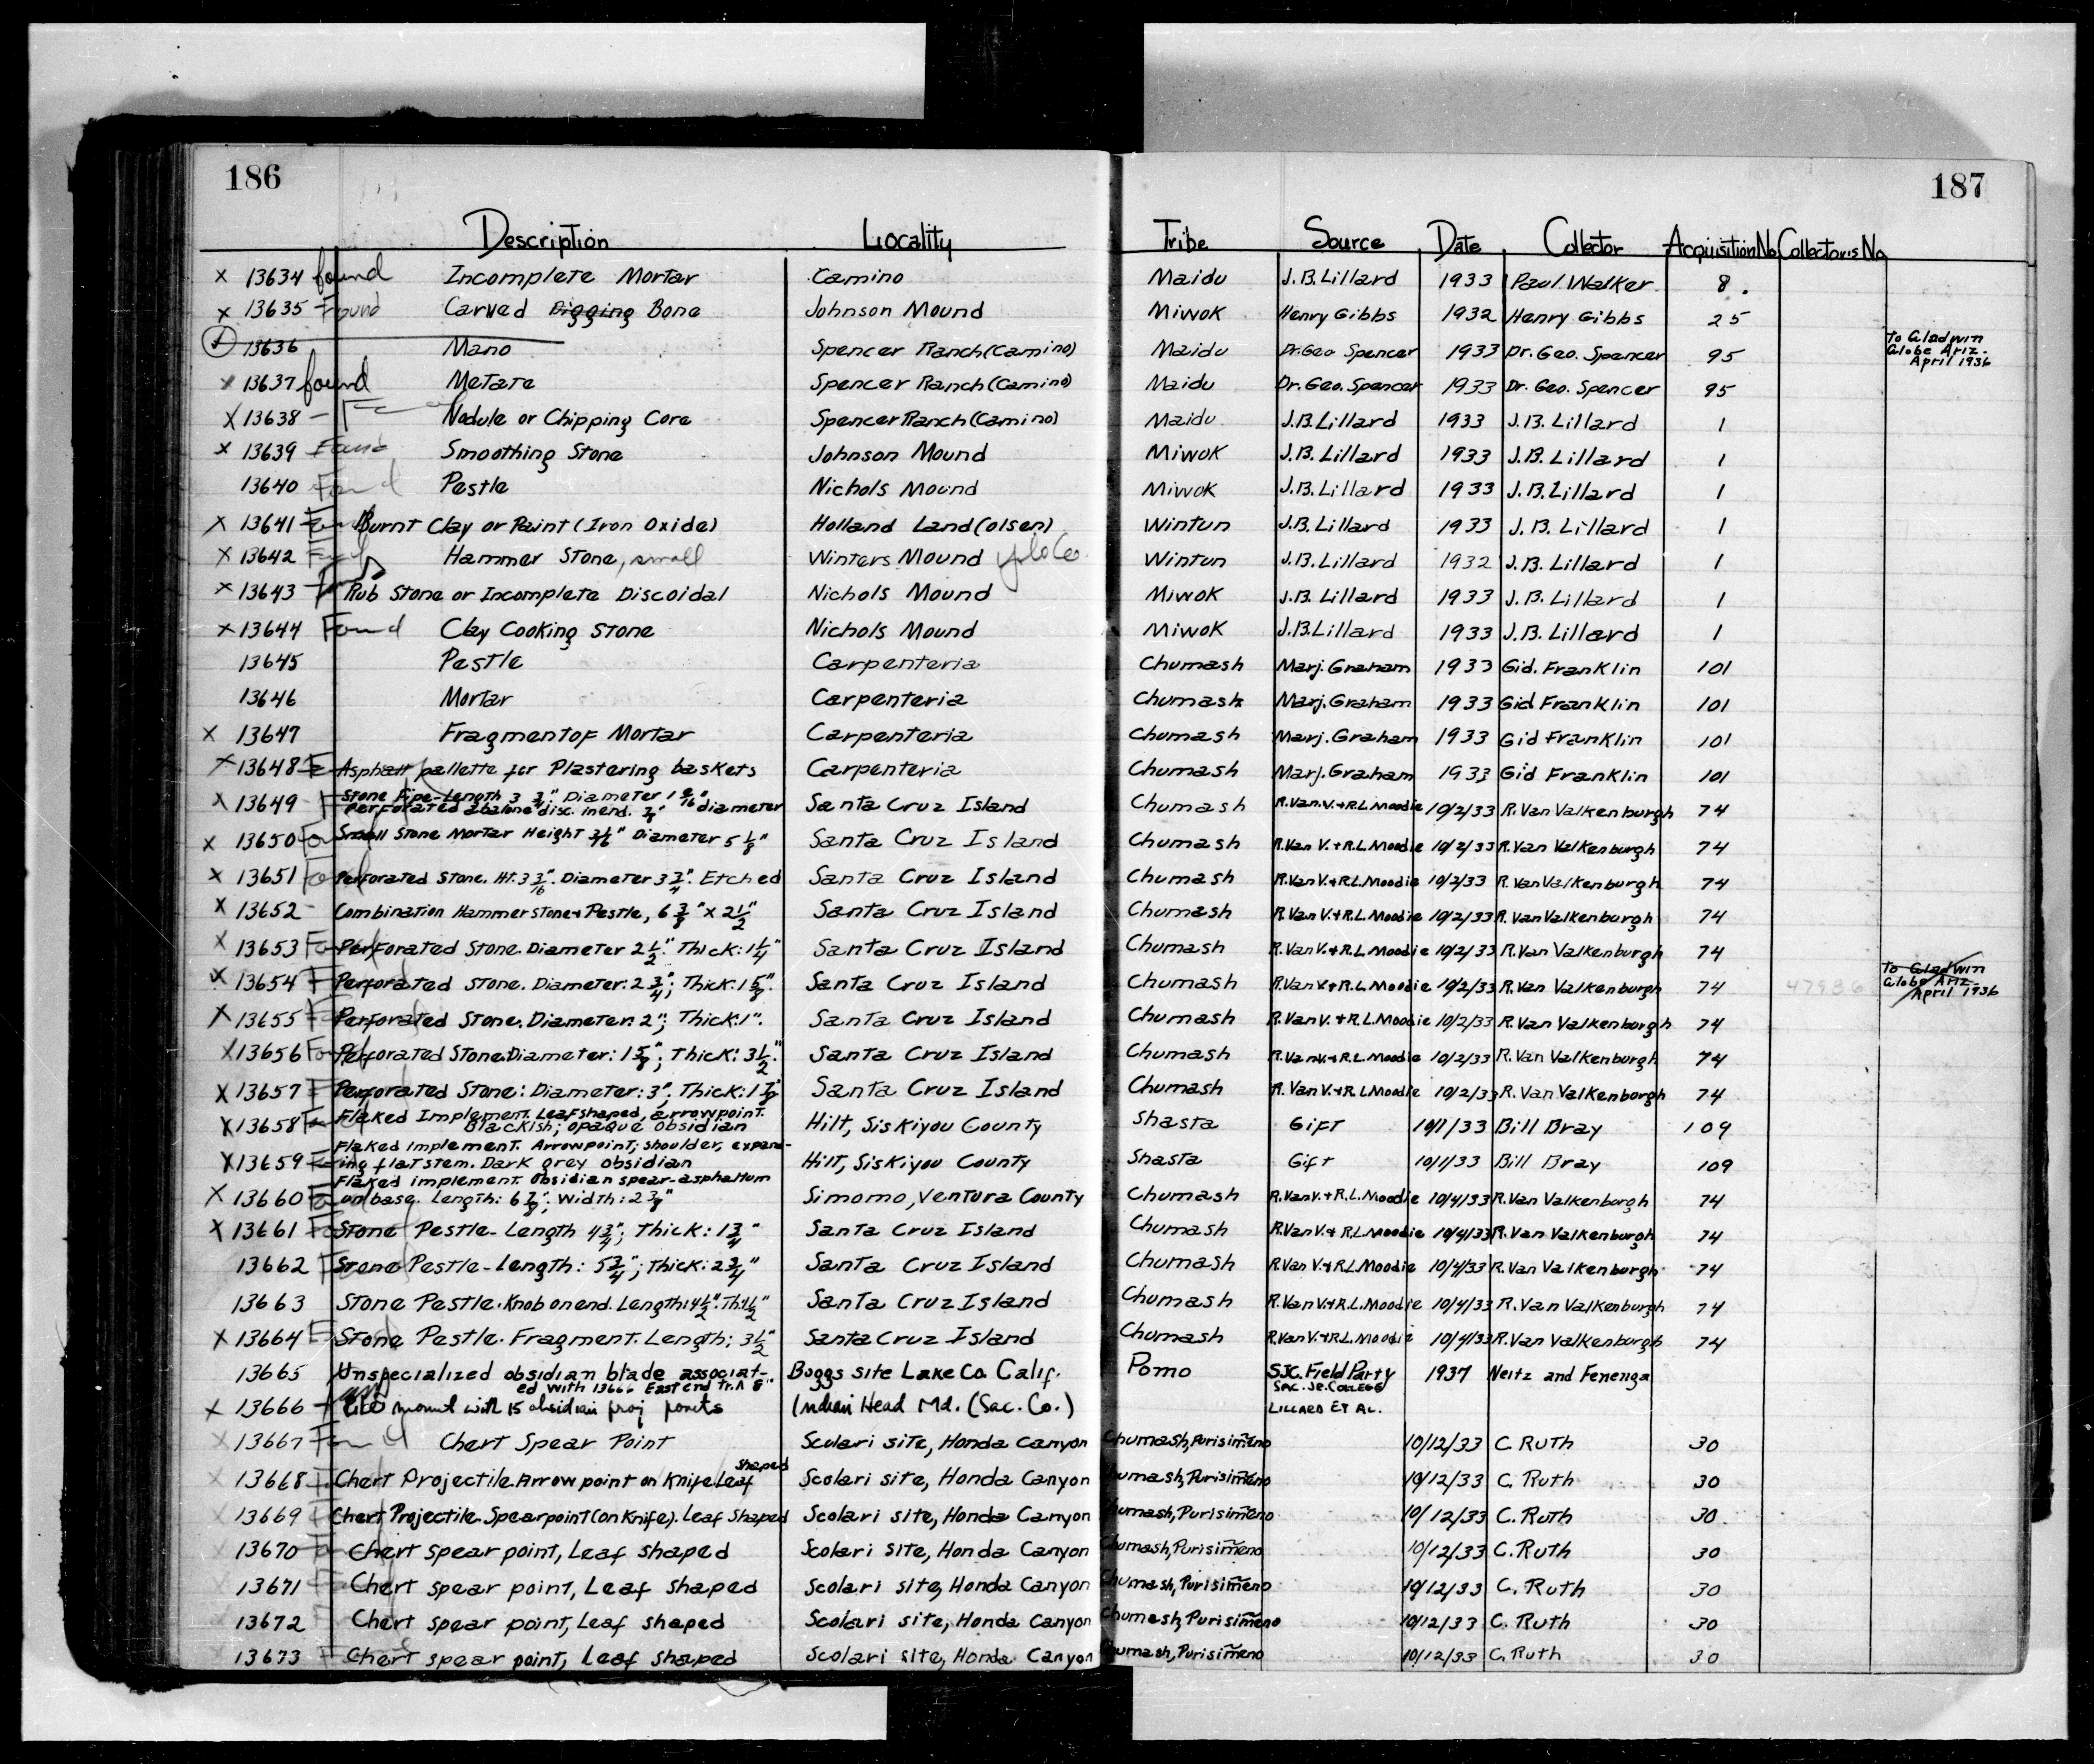 186
187
Description Locality Tribe Source Date Collector Acquisition No Collector's No.
x 13634 found Incomplete Mortar Camino Maidu J.B. Lillard 1933 Paul Walker 8.
x 13635 Found Carved Digging Bone Johnson Mound Miwok Henry Gibbs 1932 Henry Gibbs 25
13636 Mano Spencer Ranch (Camino) Maidu Dr. Geo Spencer 1933 Dr. Geo. Spencer 95 To Gladwin
Globe Ariz.
April 1936
x 13637 found Metate Spencer Ranch (Camino) Maidu Dr. Geo. Spencer 1933 Dr. Geo. Spencer 95
X 13638 - Nodule or Chipping Core Spencer Ranch (Camino) Maidu J.B. Lillard 1933 J.B. Lillard 1
x 13639 Found Smoothing Stone Johnson Mound Miwok J.B. Lillard 1933 J.B. Lillard 1
13640 Found Pestle Nichols Mound Miwok J.B. Lillard 1933 J.B. Lillard 1
x 13641 Found Burnt Clay or Paint (Iron Oxide) Holland Land (Olsen) Wintun J.B. Lillard 1933 J.B. Lillard 1
x 13642 Found Hammer Stone, small Winters Mound Yolo Co. Wintun J.B. Lillard 1932 J.B. Lillard 1
x 13643 Rub Stone or Incomplete Discoidal Nichols Mound Miwok J.B. Lillard 1933 J.B. Lillard 1
x 13644 Found Clay Cooking Stone Nichols Mound Miwok J.B. Lillard 1933 J.B. Lillard 1
13645 Pestle Carpenteria Chumash Marj. Graham 1933 Gid. Franklin 101
13646 Mortar Carpenteria Chumash Marj. Graham 1933 Gid Franklin 101
x 13647 Fragment of Mortar Carpenteria Chumash Marj. Graham 1933 Gid Franklin 101
x 13648 Asphalt pallette for Plastering baskets Carpenteria Chumash Marj. Graham 1933 Gid Franklin 101
x 13649 Stone Pipe-Length 3 3/4" Diameter 1 9/16"
Perforated abalone disc in end. 3/4" diameter Santa Cruz Island Chumash R. Van. V. + R.L. Moodie 10/2/33 R. Van Valkenburgh 74
x 13650 Small Stone Mortar Height 3 1/16" Diameter 5 1/8" Santa Cruz Island Chumash R. Van V. + R.L. Moodie 10/2/33 R. Van Valkenburgh 74
x 13651 Perforated Stone. Ht. 3 3/16". Diameter 3 3/4". Etched Santa Cruz Island Chumash R. Van V. + R.L. Moodie 10/2/33 R. Van Valkenburgh 74
x 13652 - Combination Hammerstone + Pestle, 6 3/8" x 2 1/2" Santa Cruz Island Chumash R. Van V. + R.L. Moodie 10/2/33 R. Van Valkenburgh 74
x 13653 Perforated Stone. Diameter 2 1/2". Thick: 1 1/4" Santa Cruz Island Chumash R. Van V. + R.L. Moodie 10/2/33 R. Van Valkenburgh 74
x 13654 Perforated Stone. Diameter: 2 3/4"; Thick: 1 5/8". Santa Cruz Island Chumash R. Van V. + R.L. Moodie 10/2/33 R. Van Valkenburgh 74 47936 To Gladwin
Globe Ariz.
April 1936
x 13655 Perforated Stone. Diameter: 2"; Thick: 1". Santa Cruz Island Chumash R. Van V. + R.L. Moodie 10/2/33 R. Van Valkenburgh 74
x 13656 Perforated Stone. Diameter: 1 5/8"; Thick: 3 1/2". Santa Cruz Island Chumash R. Van V. + R.L. Moodie 10/2/33 R. Van Valkenburgh 74
x 13657 Perforated Stone: Diameter: 3". Thick: 1 7/8" Santa Cruz Island Chumash R. Van V. + R.L. Moodie 10/2/33 R. Van Valkenburgh 74
x 13658 Flaked Implement. Leaf shaped, arrowpoint.
Blackish; opaque obsidian Hilt, Siskiyou County Shasta Gift 10/1/33 Bill Bray 109
x 13659 Flaked implement. Arrowpoint; shoulder, expand-
ing flat stem. Dark grey obsidian Hilt, Siskiyou County Shasta Gift 10/1/33 Bill Bray 109
x 13660 Flaked implement. Obsidian spear-asphaltum
on base. Length: 6 7/8"; Width: 2 3/8" Simomo, Ventura County Chumash R. Van V. + R.L. Moodie 10/4/33 R. Van Valkenburgh 74
x 13661 Stone Pestle-Length 4 3/4"; Thick: 1 3/4" Santa Cruz Island Chumash R. Van V. + R.L. Moodie 10/4/33 R. Van Valkenburgh 74
13662 Stone Pestle-Length: 5 3/4"; Thick: 2 3/4" Santa Cruz Island Chumash R. Van V. + R.L. Moodie 10/4/33 R. Van Valkenburgh 74
13663 Stone Pestle. Knob on end. Length: 4 1/2". Th: 1 1/2" Santa Cruz Island Chumash R. Van V. + R.L. Moodie 10/4/33 R. Van Valkenburgh 74
x 13664 Stone Pestle. Fragment. Length: 3 1/2" Santa Cruz Island Chumash R. Van V. + R.L. Moodie 10/4/33 R. Van Valkenburgh 74
13665 Unspecialized obsidian blade associat-
ed with 13666 East end tr. A 8" Boggs site Lake Co. Calif. Pomo SJC. Field Party 1937 Neitz and Fenenga
x 13666 mount with 15 obsidian proj points Indian Head Md. (Sac. Co.) Sac. Jr. College
Lillard et al.
x 13667 Found Chert Spear Point Scolari site, Honda Canyon Chumash, Purisimeño 10/12/33 C. Ruth 30
x 13668 Chert Projectile. Arrowpoint on Knife Leaf shaped Scolari site, Honda Canyon Chumash, Purisimeño 10/12/33 C. Ruth 30
x 13669 Chert Projectile. Spearpoint (on Knife). Leaf Shaped Scolari site, Honda Canyon Chumash, Purisimeño 10/12/33 C. Ruth 30
x 13670 Chert spear point, Leaf shaped Scolari site, Honda Canyon Chumash, Purisimeño 10/12/33 C. Ruth 30
13671 Chert spear point, Leaf shaped Scolari site, Honda Canyon Chumash, Purisimeño 10/12/33 C. Ruth 30
13672 Chert spear point, Leaf shaped Scolari site, Honda Canyon Chumash, Purisimeño 10/12/33 C. Ruth 30
13673 Chert spear point, Leaf shaped Scolari site, Honda Canyon Chumash, Purisimeño 10/12/33 C. Ruth 30